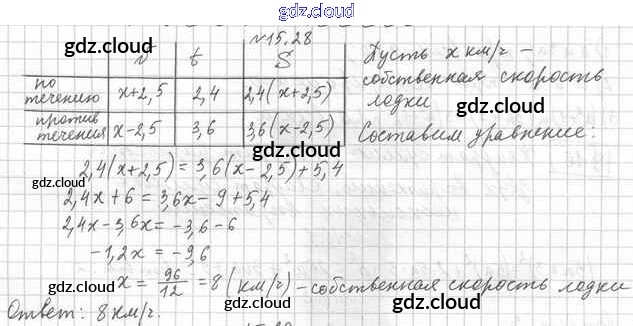 gdz.cloud
№15.28
gdz.cloud gdz.cloud gdz.cloud
v t S
по течению x+2,5 2,4 2,4(x+2,5)
против течения x-2,5 3,6 3,6(x-2,5)
Пусть x км/ч –
собственная скорость
лодки
gdz.cloud
Составим уравнение:
gdz.cloud
2,4(x+2,5)=3,6(x-2,5)+5,4
gdz.cloud
2,4x+6=3,6x-9+5,4
gdz.cloud
2,4x-3,6x=-3,6-6
gdz.cloud
-1,2x=-9,6
gdz.cloud
x=96/12=8(км/ч)-собственная скорость лодки
gdz.cloud
Ответ: 8км/ч.
gdz.cloud